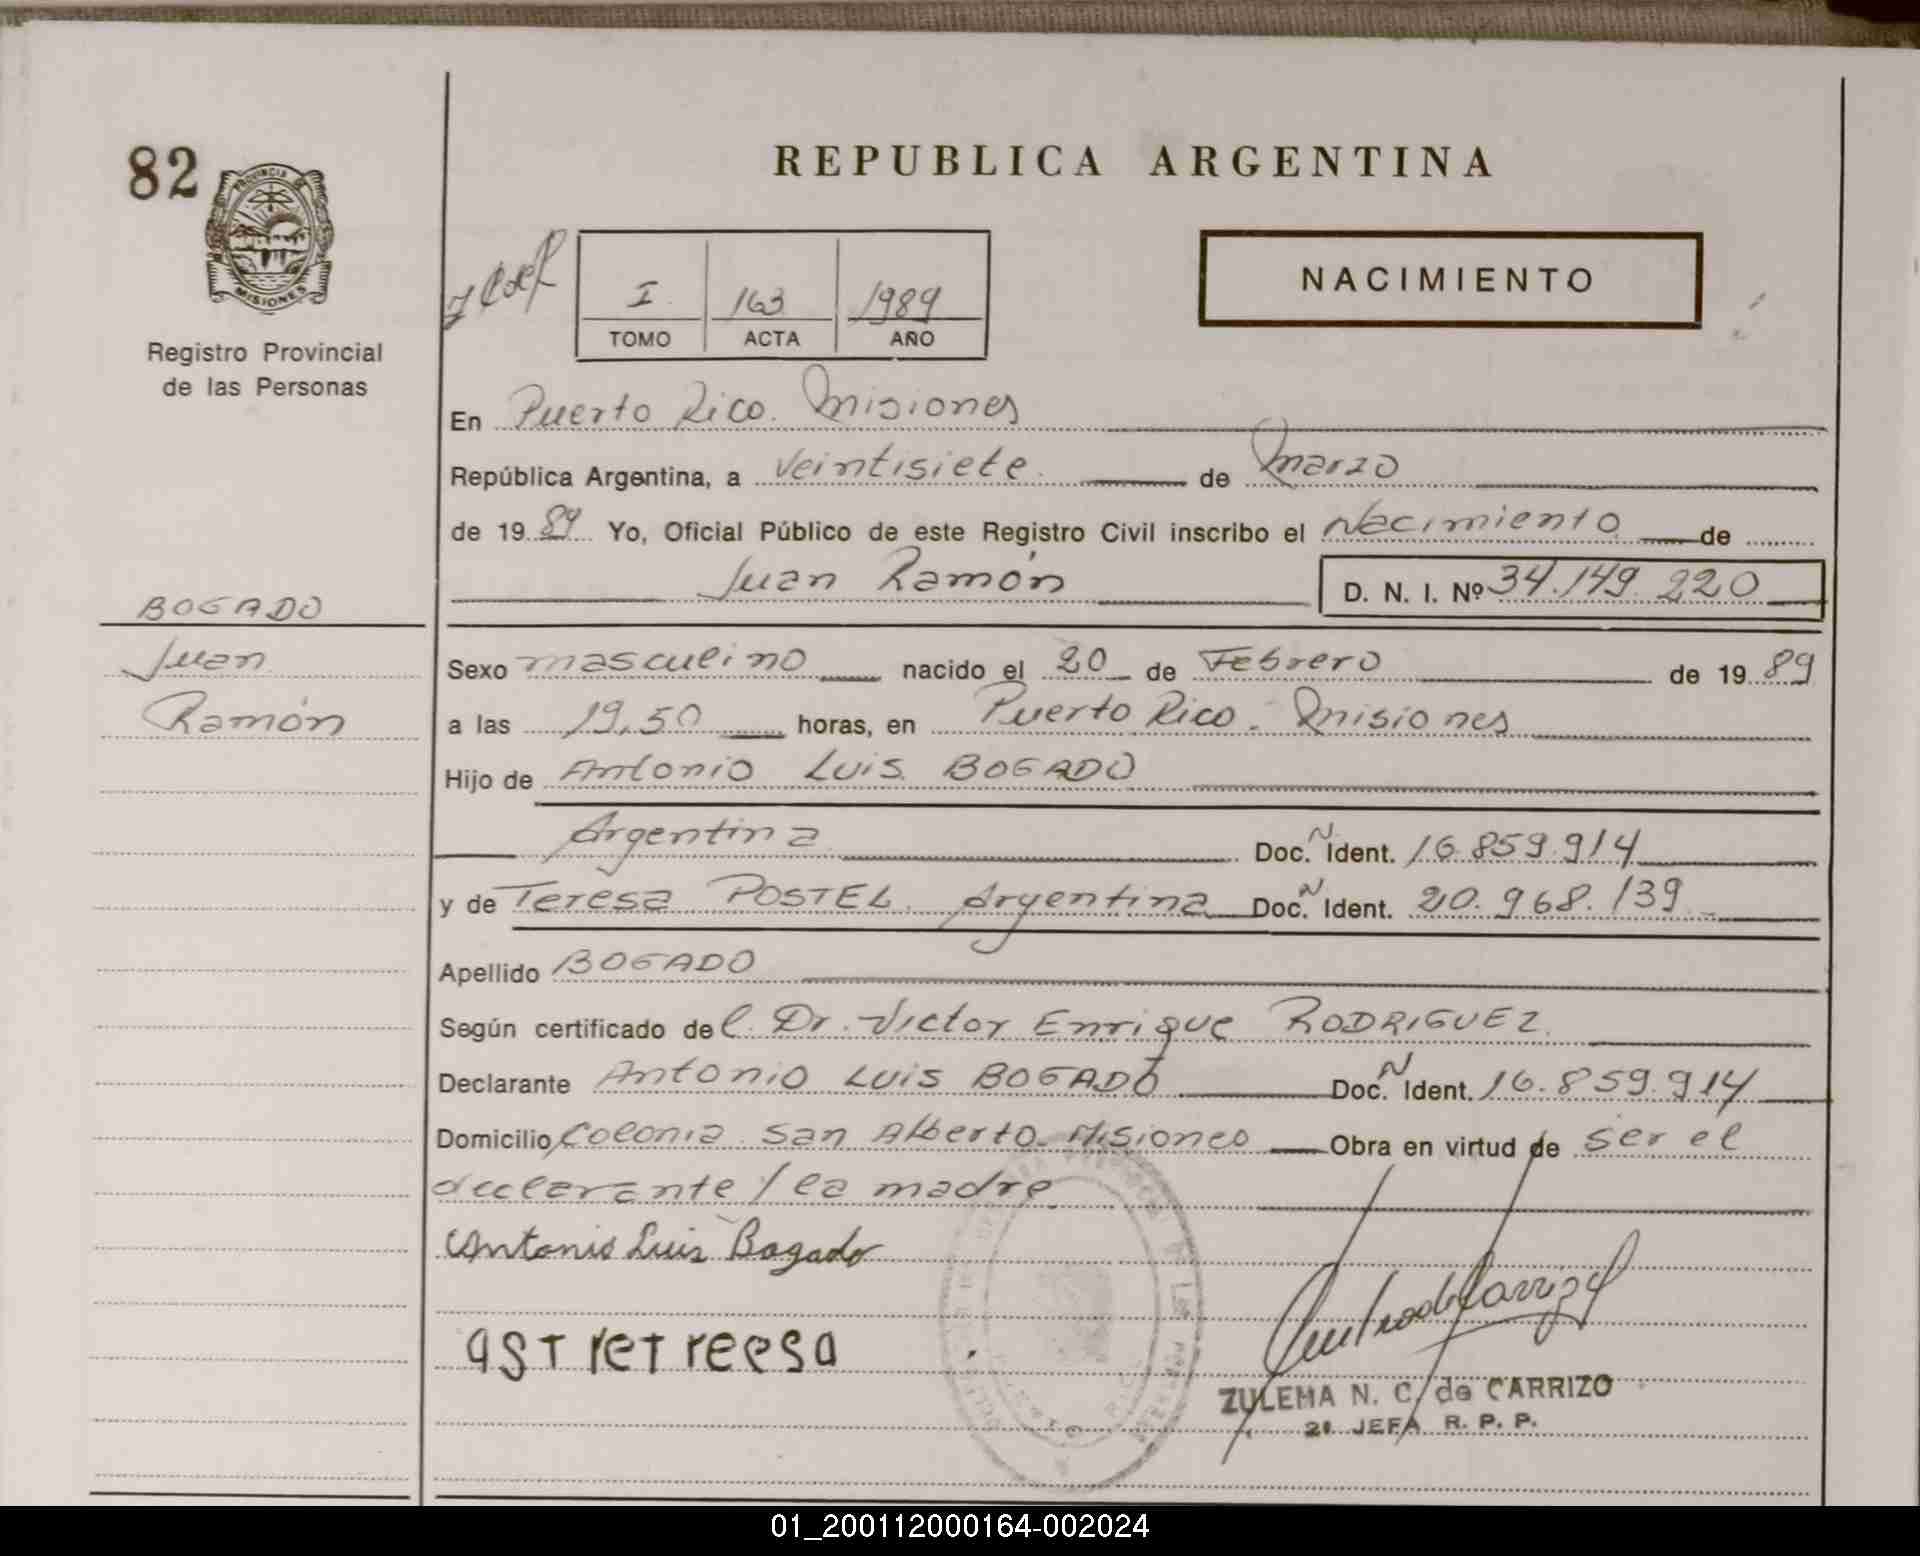 82
PROVINCIA DE
MISIONES
Registro Provincial
de las Personas
REPUBLICA ARGENTINA
I 163 1989
TOMO ACTA AÑO
NACIMIENTO
En Puerto Rico. Misiones
República Argentina, a veintisiete de Marzo
de 1989 Yo, Oficial Público de este Registro Civil inscribo el Nacimiento de
Juan Ramón D. N. I. Nº 34.149.220
BOGADO
Juan
Ramón
Sexo masculino nacido el 20 de Febrero de 1989
a las 19,50 horas, en Puerto Rico - Misiones
Hijo de Antonio Luis BOGADO
Argentina Doc. N Ident. 16.859.914
y de Teresa POSTEL Argentina Doc. N Ident. 20.968.139
Apellido BOGADO
Según certificado del Dr. Victor Enrique RODRIGUEZ
Declarante Antonio Luis BOGADO Doc. N Ident. 16.859.914
Domicilio Colonia San Alberto - Misiones Obra en virtud de ser el
declarante / la madre
Antonio Luis Bogado
qsT reT reesa
ZULEMA N. C. de CARRIZO
2ª JEFA R. P. P.
01_200112000164-002024